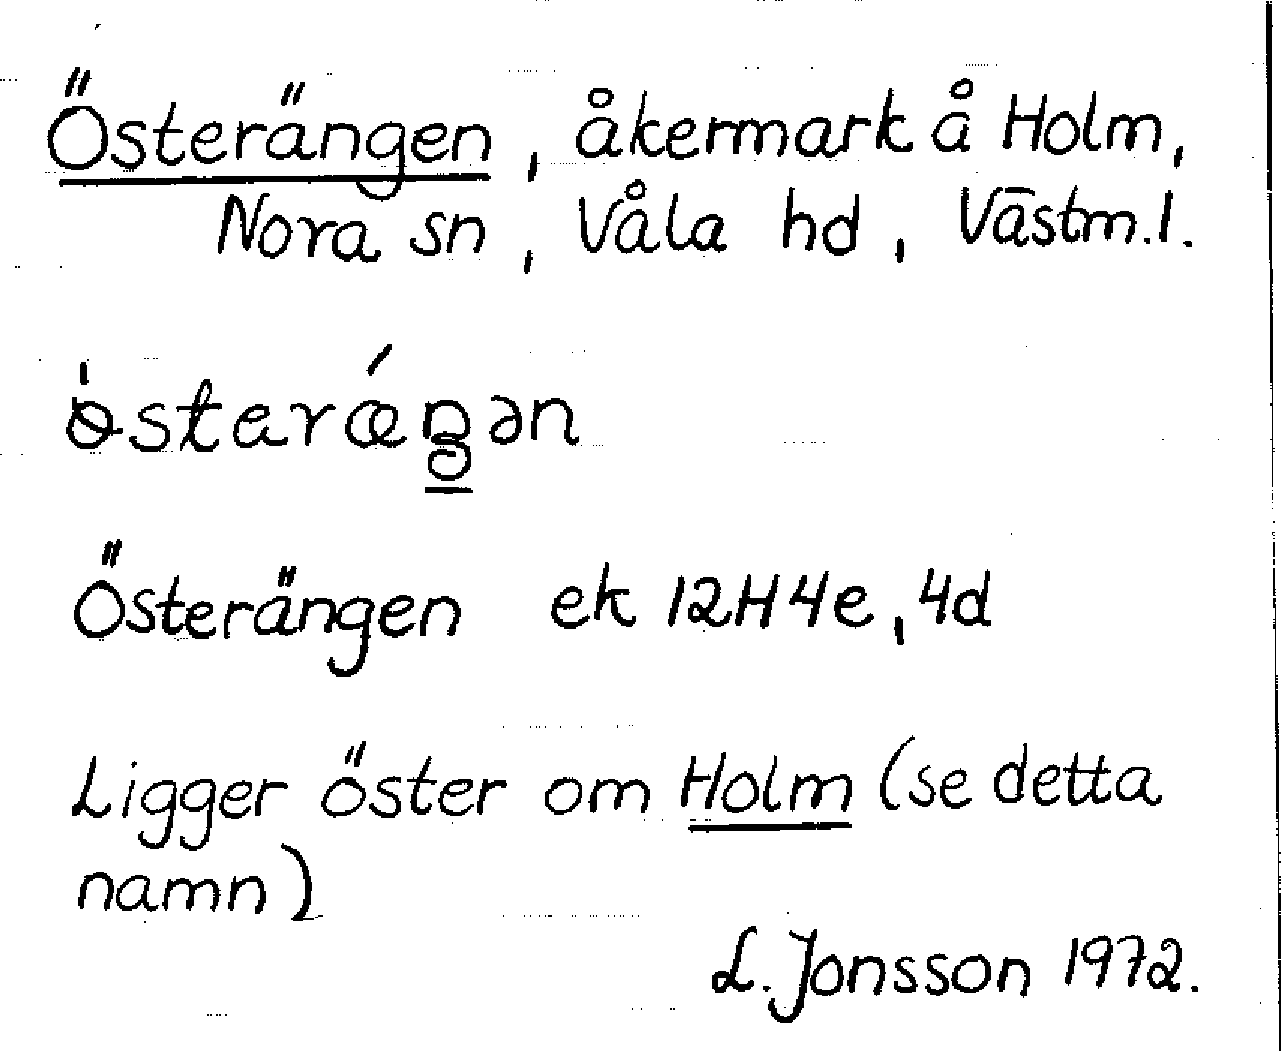 Österängen, åkermark å Holm,
Nora sn, Våla hd, Västm.l.
Österängen ek 12H4e, 4d
Ligger öster om Holm (se detta
namn)
L. Jonsson 1972.